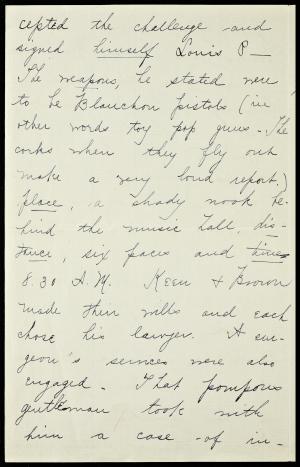 cepted the challenge and
signed himself Louis P—
The weapons, he stated were
to be Blanchon pistols (in
other words toy pop guns - The
corks when they fly out
make a very loud report.)
place, a shady nook be-
hind the music hall, dis-
tance, six paces and time
8.30 A.M. Keen & Brown
made their wills and each
chose his lawyer. A sur-
geon's services were also
engaged. That pompous
gentleman took with
him a case of in-